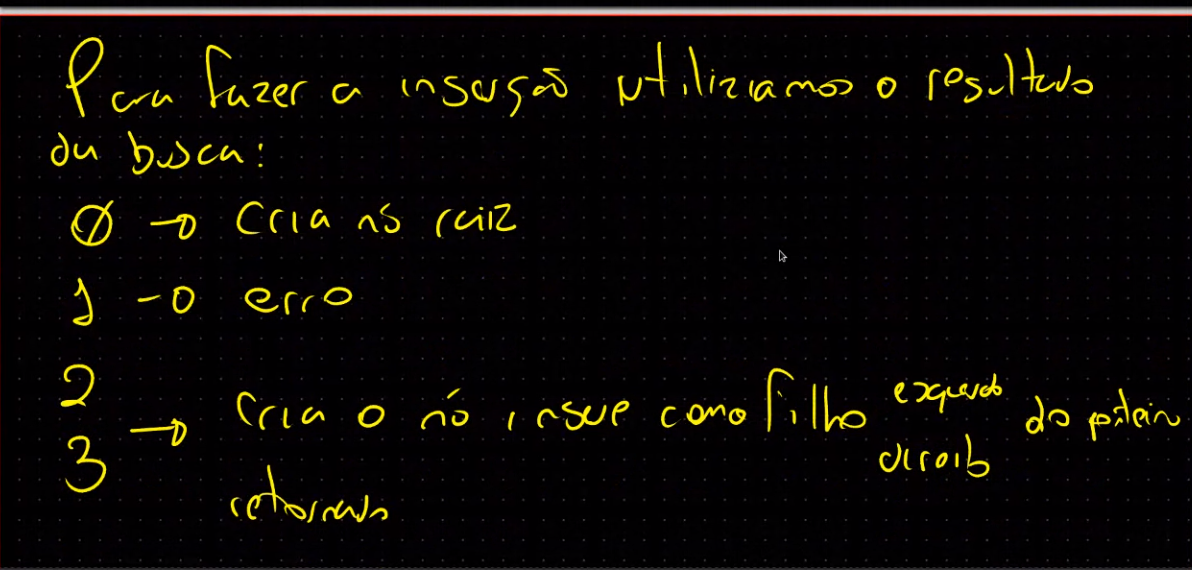 Para fazer a inserção utilizamos o resultado
da busca:
0 → Cria nó raiz
1 → erro
2
3 → Cria o nó insere como filho esquerdo do ponteiro
direito
retornado